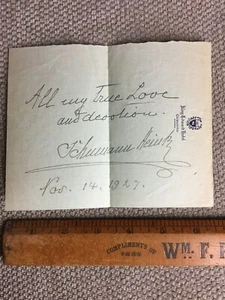 All my True Love
and devotion.
Schumann Heink
Nov. 14. 1927.
COMPLIMENTS OF
WM. F.